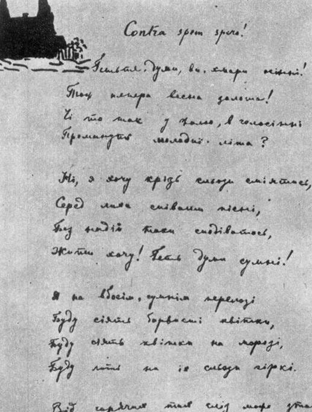 Contra spem spero!
Гетьте, думи, ви, хмари осінні!
Тож тепера весна золота!
Чи то так у жалю, в голосінні
Проминуть молодії літа?
Ні, я хочу крізь сльози сміятись,
Серед лиха співати пісні,
Без надії таки сподіватись,
Жити хочу! Геть думи сумні!
Я на вбогім, сумнім перелозі
Буду сіять барвисті квітки,
Буду сіять квітки на морозі,
Буду лить на їх сльози гіркі.
Від гарячих тих сліз